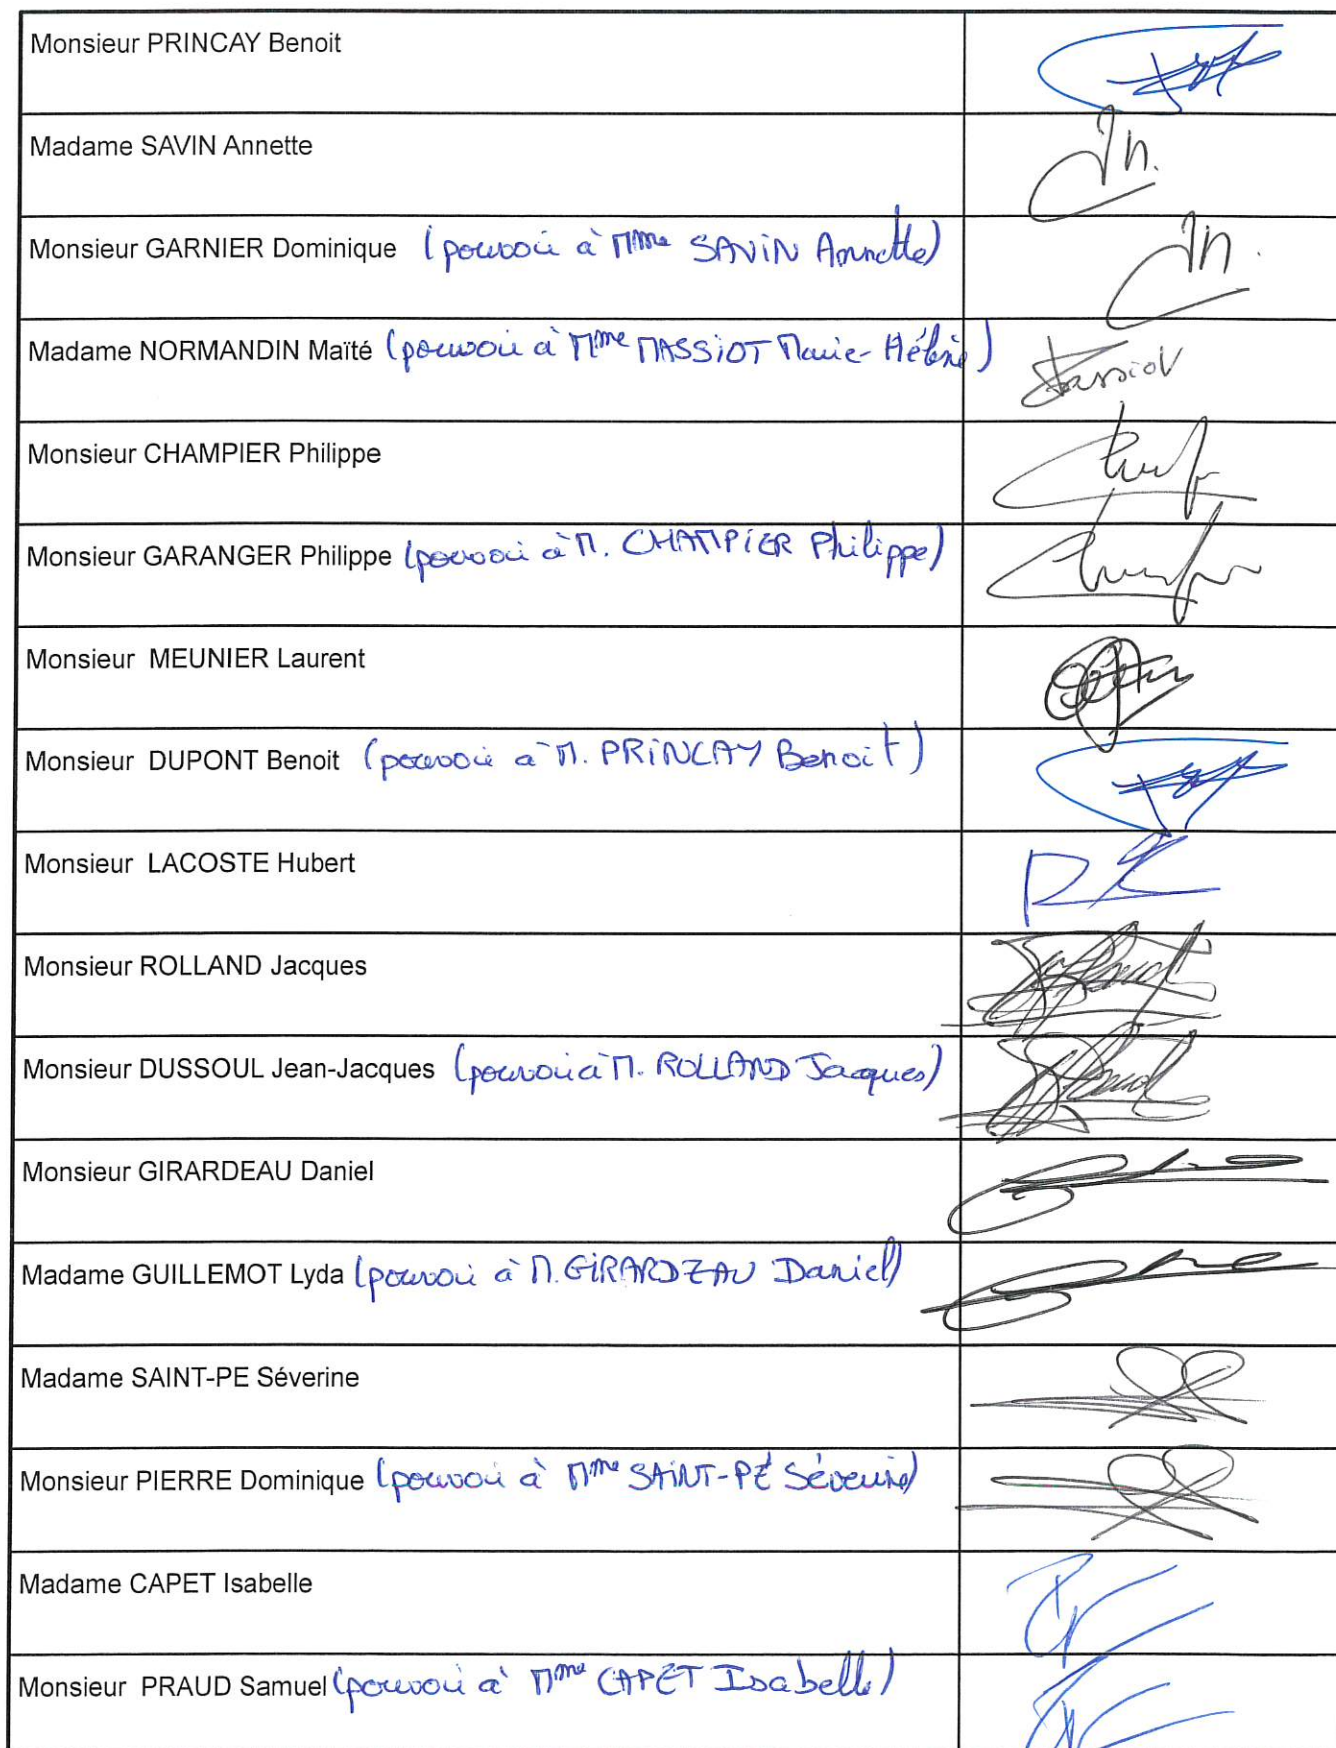 Monsieur PRINCAY Benoit
Madame SAVIN Annette
Monsieur GARNIER Dominique (pouvoir à Mme SAVIN Annette)
Madame NORMANDIN Maïté (pouvoir à Mme MASSIOT Marie-Hélène)
Massiot
Monsieur CHAMPIER Philippe
Monsieur GARANGER Philippe (pouvoir à M. CHAMPIER Philippe)
Monsieur MEUNIER Laurent
Monsieur DUPONT Benoit (pouvoir à M. PRINCAY Benoit)
Monsieur LACOSTE Hubert
Monsieur ROLLAND Jacques
Monsieur DUSSOUL Jean-Jacques (pouvoir à M. ROLLAND Jacques)
Monsieur GIRARDEAU Daniel
Madame GUILLEMOT Lyda (pouvoir à M. GIRARDEAU Daniel)
Madame SAINT-PE Séverine
Monsieur PIERRE Dominique (pouvoir à Mme SAINT-PÉ Séverine)
Madame CAPET Isabelle
Monsieur PRAUD Samuel (pouvoir à Mme CAPET Isabelle)